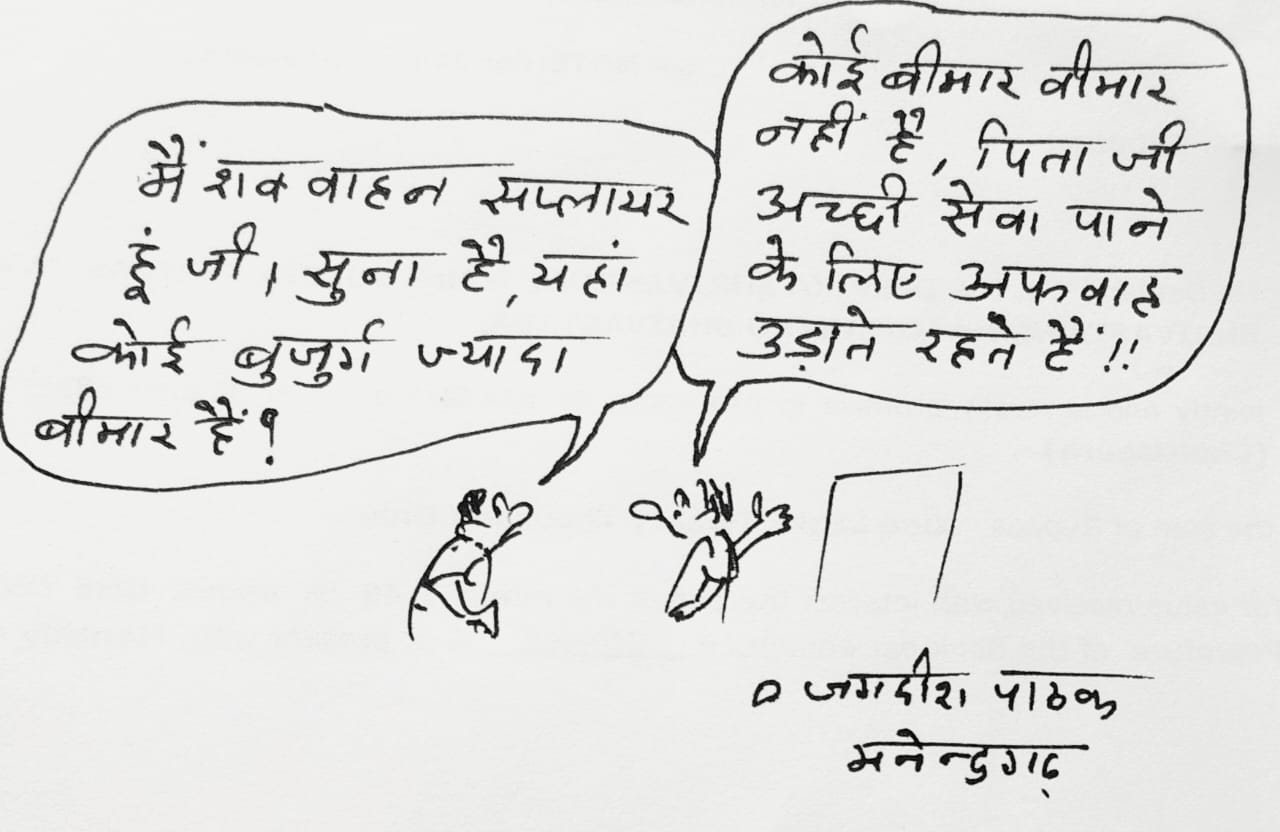 मैं शव वाहन सप्लायर
हूं जी, सुना है, यहां
कोई बुजुर्ग ज्यादा
बीमार हैं?
कोई बीमार वीमार
नहीं है, पिता जी
अच्छी सेवा पाने
के लिए अफवाह
उड़ाते रहते हैं!!
जगदीश पाठक
मनेन्द्रगढ़